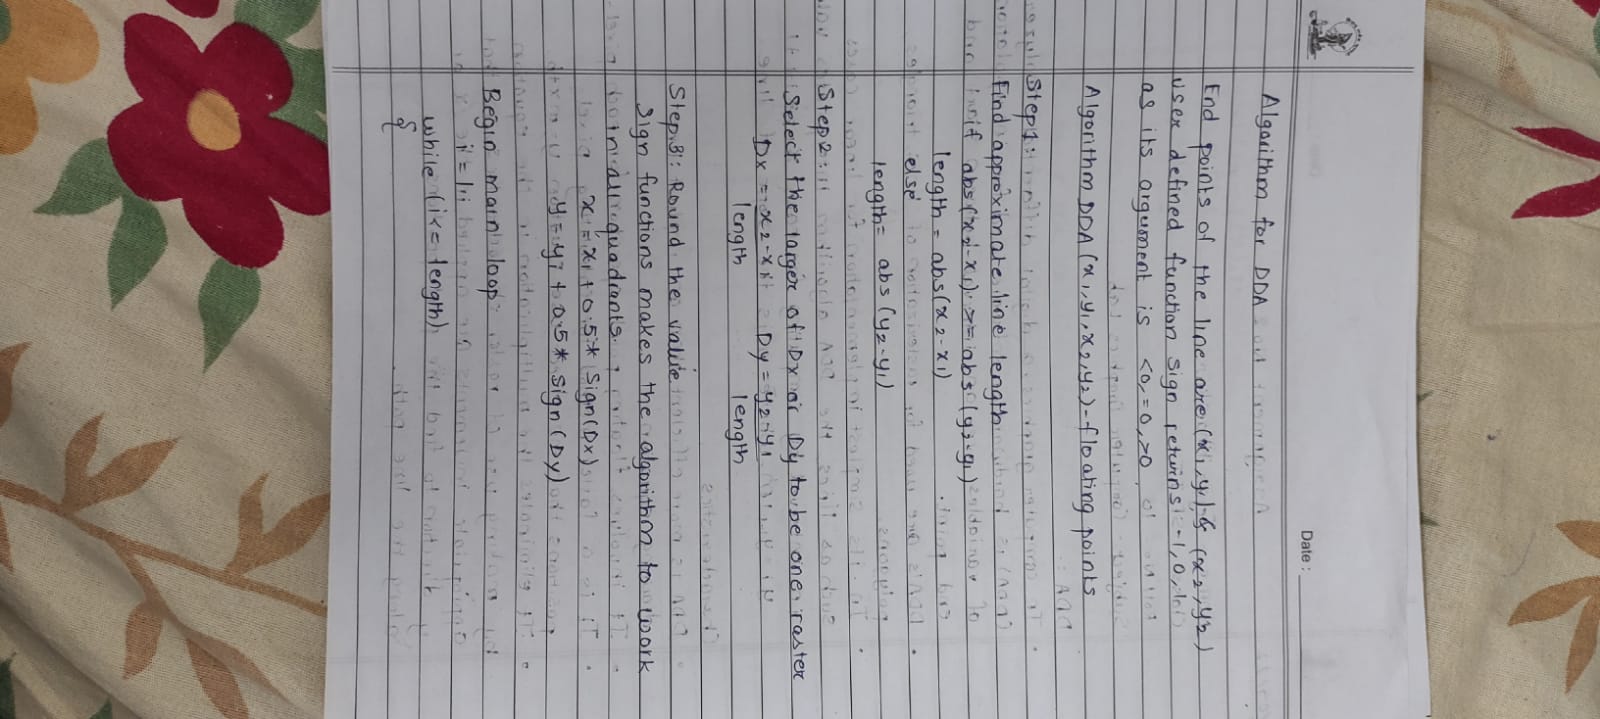 Date :
Algorithm for DDA
End points of the line are (x1,y1) & (x2,y2)
user defined function sign returns -1,0,1
as its argument is <0,=0,>0
Algorithm DDA (x1,y1,x2,y2)-floating points
Step 1:
Find approximate line length
if abs(x2-x1) >= abs (y2-y1)
length = abs(x2-x1)
else
length= abs (y2-y1)
Step 2:
Select the larger of Dx or Dy to be one raster
Dx = x2-x1 Dy = y2-y1
length length
Step 3: Round the value
Sign functions makes the algorithm to work
in all quadrants.
x = x1 + 0.5* Sign(Dx)
y = y1 + 0.5* Sign (Dy)
Begin main loop
i = 1
while (i<= length)
{